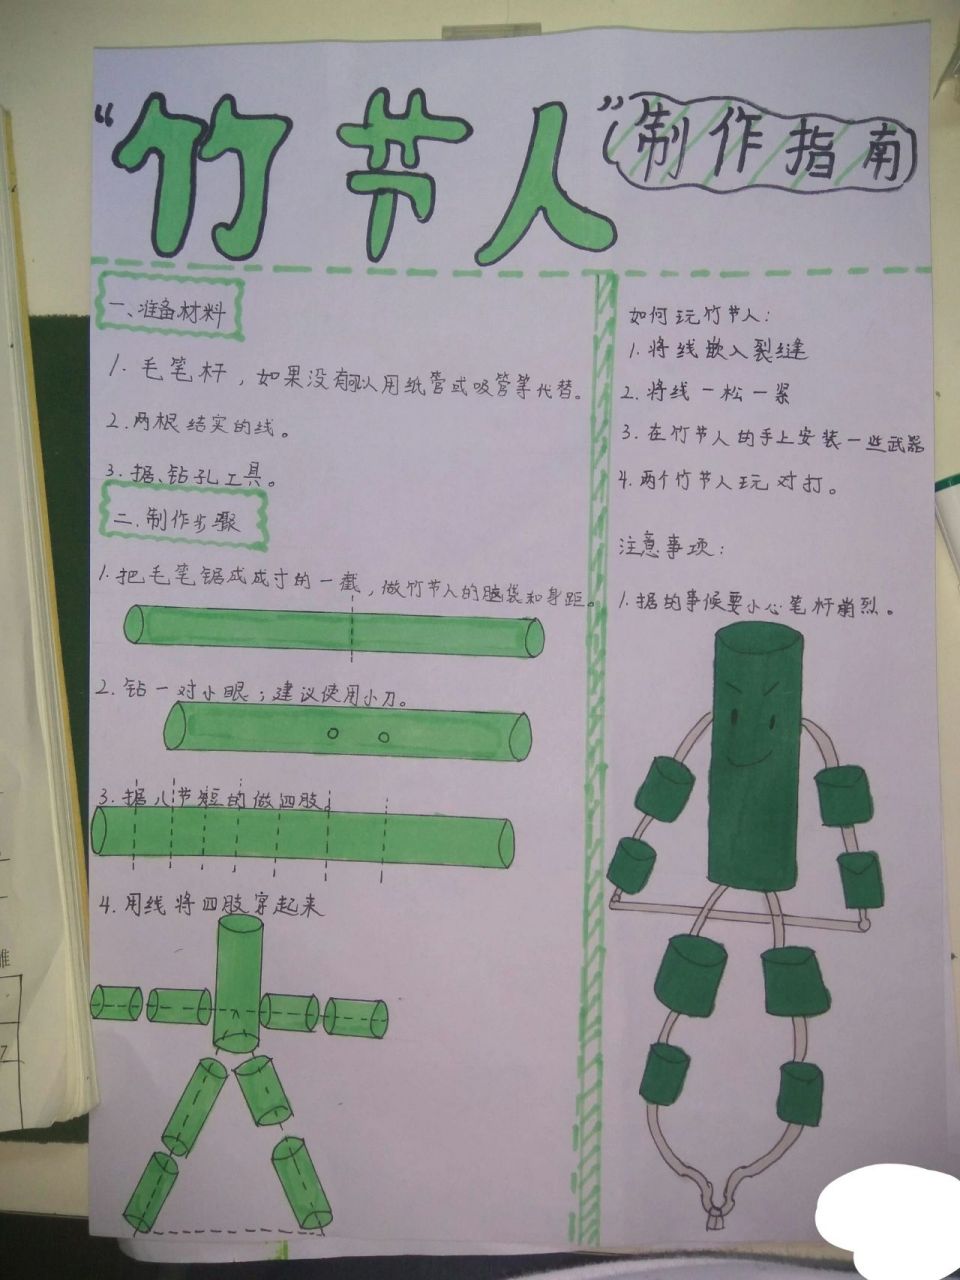 “竹节人”制作指南
一、准备材料
1.毛笔杆，如果没有可以用纸管或吸管等代替。
2.两根结实的线。
3.据、钻孔工具。
二.制作步骤
1.把毛笔锯成成寸的一截，做竹节人的脑袋和身距。
2.钻一对小眼；建议使用小刀。
3.据八节短的做四肢。
4.用线将四肢穿起来
如何玩竹节人：
1.将线嵌入裂缝
2.将线一松一紧
3.在竹节人的手上安装一些武器
4.两个竹节人玩对打。
注意事项：
1.据的事候要小心笔杆崩烈。